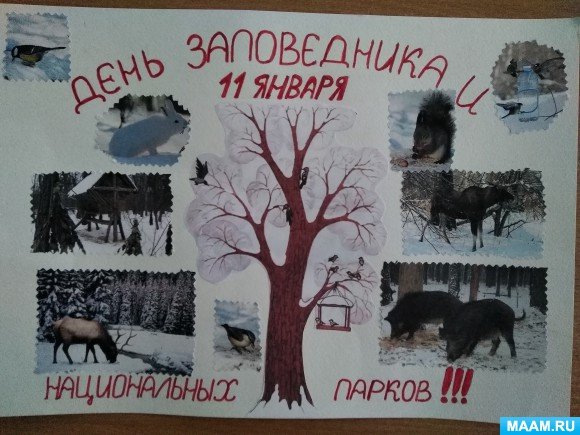 ДЕНЬ ЗАПОВЕДНИКА И
11 ЯНВАРЯ
НАЦИОНАЛЬНЫХ ПАРКОВ!!!
MAAM.RU